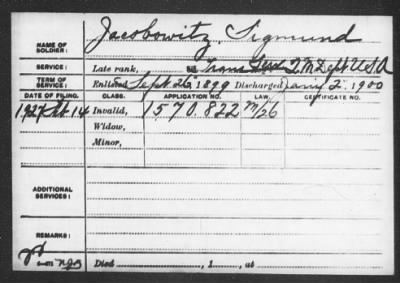 NAME OF SOLDIER: Jacobowitz, Sigmund
SERVICE: Late rank, Trans Q.M. Dept U.S.A
TERM OF SERVICE: Enlisted Sept 26, 1899 Discharged Jany 2, 1900
DATE OF FILING. CLASS. APPLICATION NO. LAW. CERTIFICATE NO.
1927 14 Invalid, 1570.822 M/26
Widow,
Minor,
ADDITIONAL SERVICES:
REMARKS:
Died , 1 , at